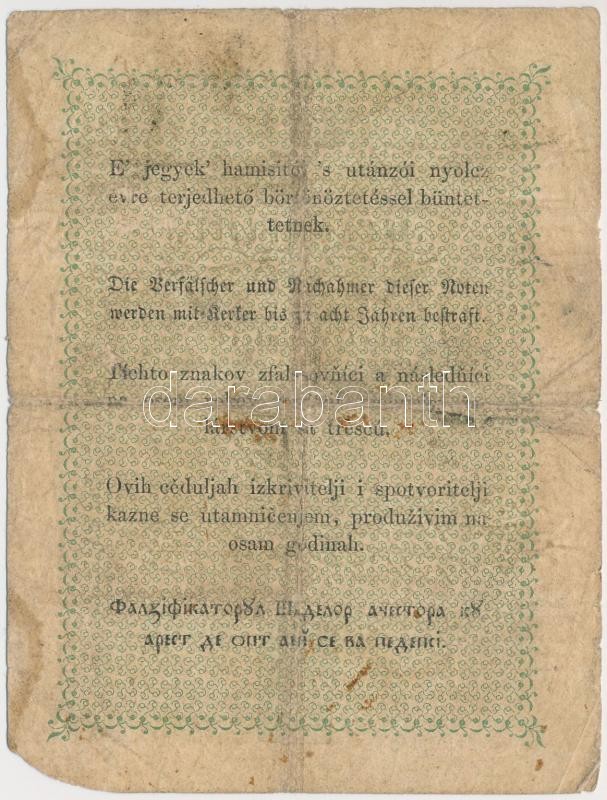 E' jegyek' hamisítói 's utánzói nyolcz
évre terjedhető börtönöztetéssel büntet-
tetnek.
Die Verfälscher und Nachahmer dieser Noten
werden mit Kerker bis zu acht Jahren bestraft.
Tichto znakov zfalšovňíci a následňíci
na
darabanth
sa trescú.
Ovih cěduljah izkrivitelji i spotvoritelji
kazne se utamničenjem, produživim na
osam godinah.
Фалзіфікаторꙋл Шіделор ачестора кꙋ
арест де опт аній се ва педепсі.